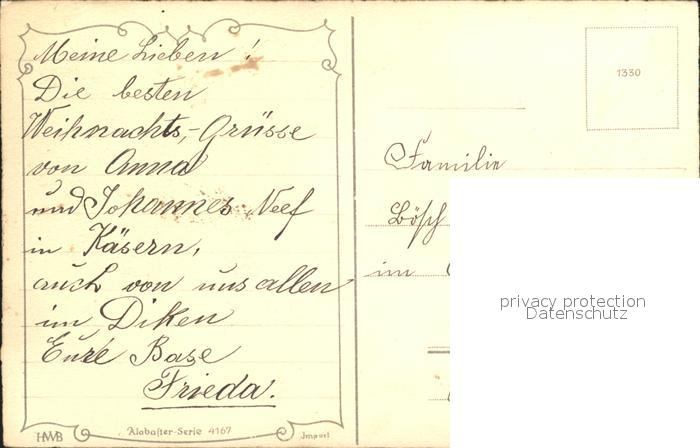 Meine Lieben!
Die besten
Weihnachts-Grüsse
von Anna
und Johannes Neef
in Käsern,
auch von uns allen
im Diken
Eure Base
Frieda.
HWB
Alabaster-Serie 4167
Import
1330
Familie
Bösch
im
privacy protection
Datenschutz